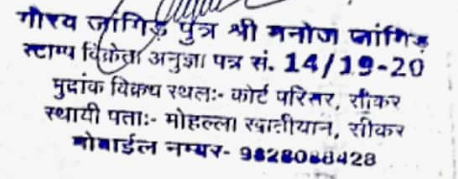 गौरव जांगिड़ पुत्र श्री मनोज जांगिड़
स्टाम्प विक्रेता अनुज्ञा पत्र सं. 14/19-20
मुद्रांक विक्रय स्थलः- कोर्ट परिसर, सीकर
स्थायी पताः- मोहल्ला खातीयान, सीकर
मोबाईल नम्बर- 9828088428